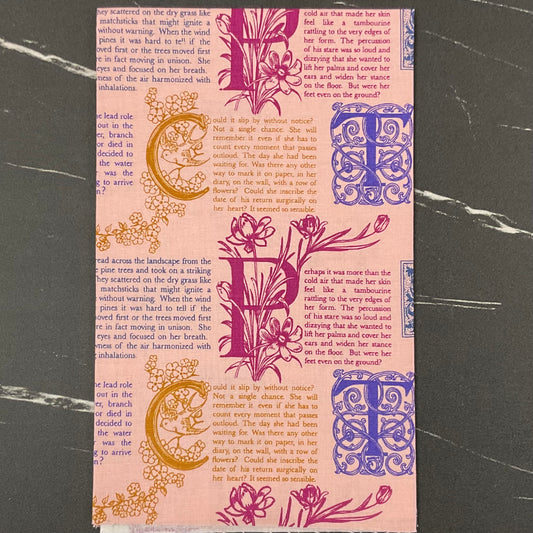 they scattered on the dry grass like
matchsticks that might ignite a
without warning. When the wind
pines it was hard to tell if the
moved first or the trees moved first
e in fact moving in unison. She
eyes and focused on her breath.
ness of the air harmonized with
inhalations.
P
cold air that made her skin
feel like a tambourine
rattling to the very edges of
her form. The percussion
of his stare was so loud and
dizzying that she wanted to
lift her palms and cover her
ears and widen her stance
on the floor. But were her
feet even on the ground?
he lead role
out in the
er, branch
or died in
decided to
the water
was the
g to arrive
n?
C
ould it slip by without notice?
Not a single chance. She will
remember it even if she has to
count every moment that passes
outloud. The day she had been
waiting for. Was there any other
way to mark it on paper, in her
diary, on the wall, with a row of
flowers? Could she inscribe the
date of his return surgically on
her heart? It seemed so sensible.
T
read across the landscape from the
e pine trees and took on a striking
They scattered on the dry grass like
matchsticks that might ignite a
without warning. When the wind
pines it was hard to tell if the
moved first or the trees moved first
re in fact moving in unison. She
eyes and focused on her breath.
ness of the air harmonized with
inhalations.
P
erhaps it was more than the
cold air that made her skin
feel like a tambourine
rattling to the very edges of
her form. The percussion
of his stare was so loud and
dizzying that she wanted to
lift her palms and cover her
ears and widen her stance
on the floor. But were her
feet even on the ground?
he lead role
out in the
er, branch
or died in
decided to
the water
was the
g to arrive
n?
C
ould it slip by without notice?
Not a single chance. She will
remember it even if she has to
count every moment that passes
outloud. The day she had been
waiting for. Was there any other
way to mark it on paper, in her
diary, on the wall, with a row of
flowers? Could she inscribe the
date of his return surgically on
her heart? It seemed so sensible.
T